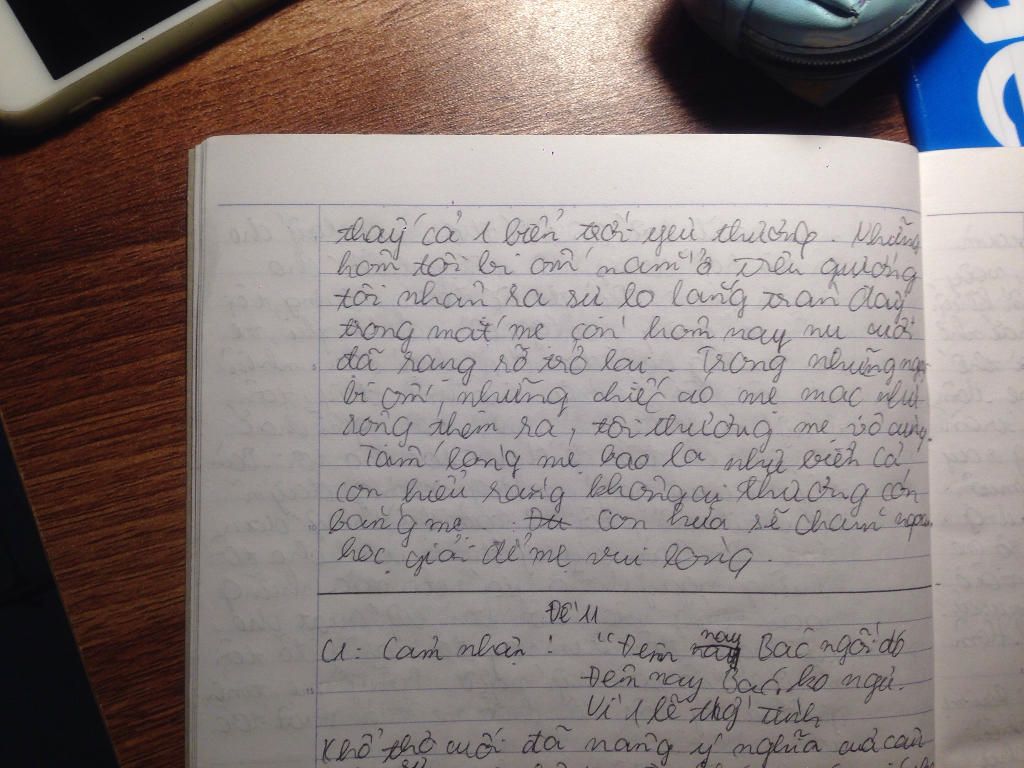 thấy cả 1 biển trời yêu thương. Những
hôm tôi bị ốm nằm ở trên giường
tôi nhận ra sự lo lắng tràn đầy
trong mắt mẹ còn hôm nay nụ cười
đã rạng rỡ trở lại. Trong những ngày
bị ốm, những chiếc áo mẹ mặc như
rộng thêm ra, tôi thương mẹ vô cùng.
Tấm lòng mẹ bao la như biển cả
con hiểu rằng không ai thương con
bằng mẹ. con hứa sẽ chăm ngoan
học giỏi để mẹ vui lòng.
Đề 11
C1: Cảm nhận: "Đêm nay Bác ngồi đó
Đêm nay Bác ko ngủ.
Vì 1 lẽ thường tình
Khổ thơ cuối đã nâng ý nghĩa của câu